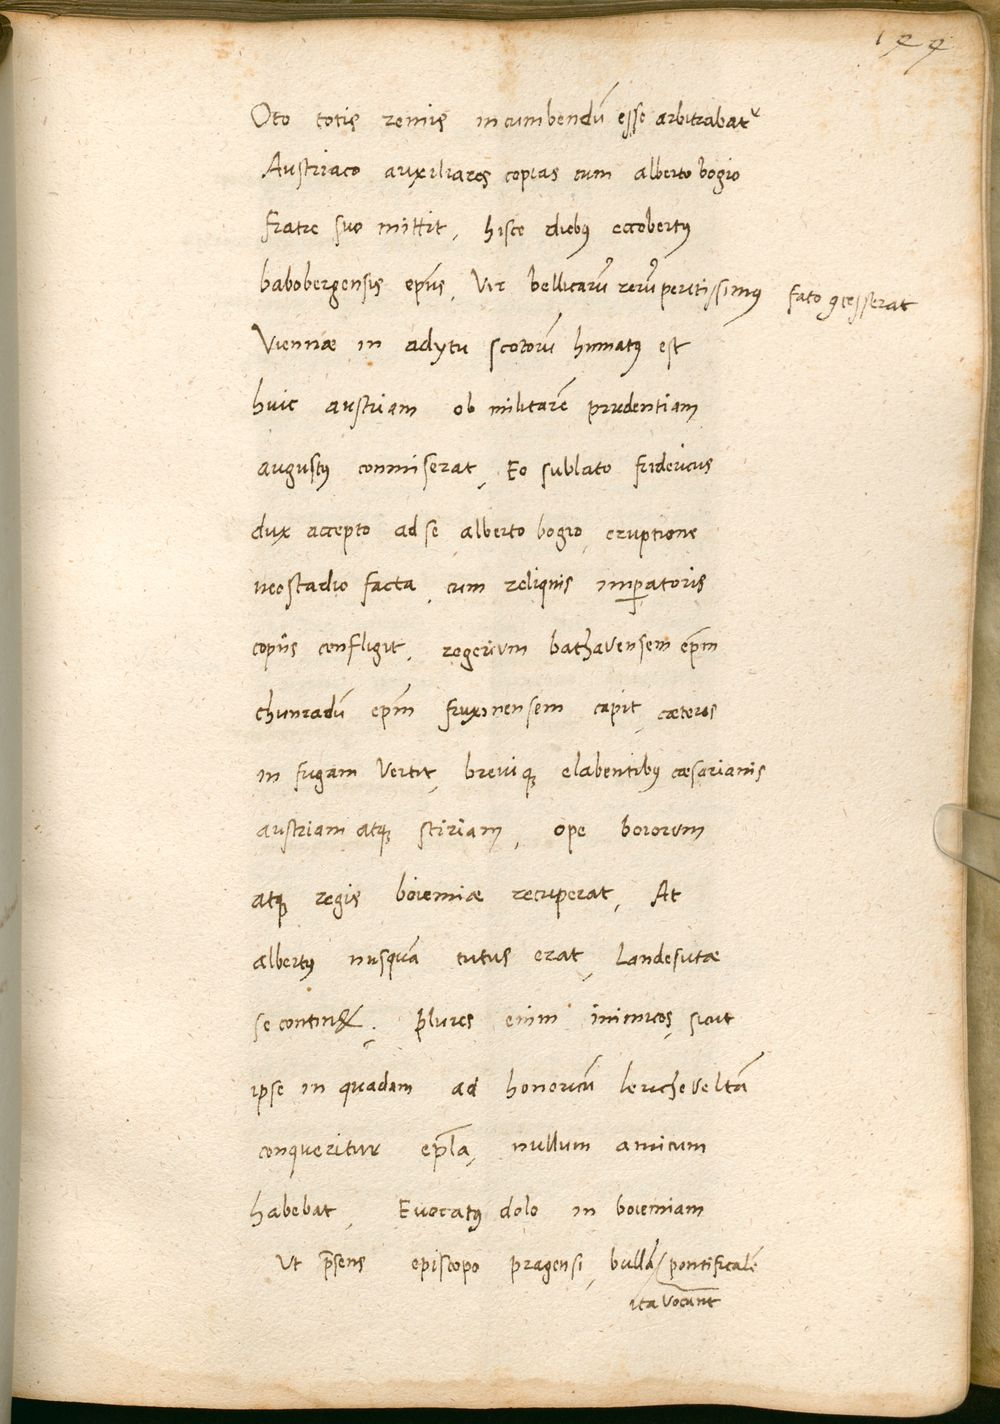 144
Oto totis remis incumbendū esse arbitrabatᷣ
Austriaco auxiliares copias cum alberto bogio
fratre suo mittit, hisce diebꝰ eccobertꝰ
babobergensis ep̄us, Vir bellicarū rerū peritissimꝰ fato ꝯcesserat
Viennæ in adytu scotorū humatꝰ est
huic austriam ob militarē prudentiam
augustꝰ commiserat, Eo sublato fridericus
dux accepto ad se alberto bogio, eruptione
neostadio facta, cum reliquis imꝑatoris
copiis confligit, regerium bathavensem ep̄m
chunradū ep̄m fruxinensem capit, cæteros
in fugam vertit, breviqꝫ elabentibꝰ cæsarianis
austriam atqꝫ stiriam, ope boiorum
atqꝫ regis boiemiæ recuperat, At
albertꝰ nusquā tutus erat, Landesutæ
se contin&, plures enim inimicos, sicut
ipse in quadam ad honoricū lerucheveltā
conqueritur ep̄la, nullum amicum
habebat, Evocatꝰ dolo in boiemiam
Ut p̄sens episcopo pragensi, bullā (pontificalē
ita vocant